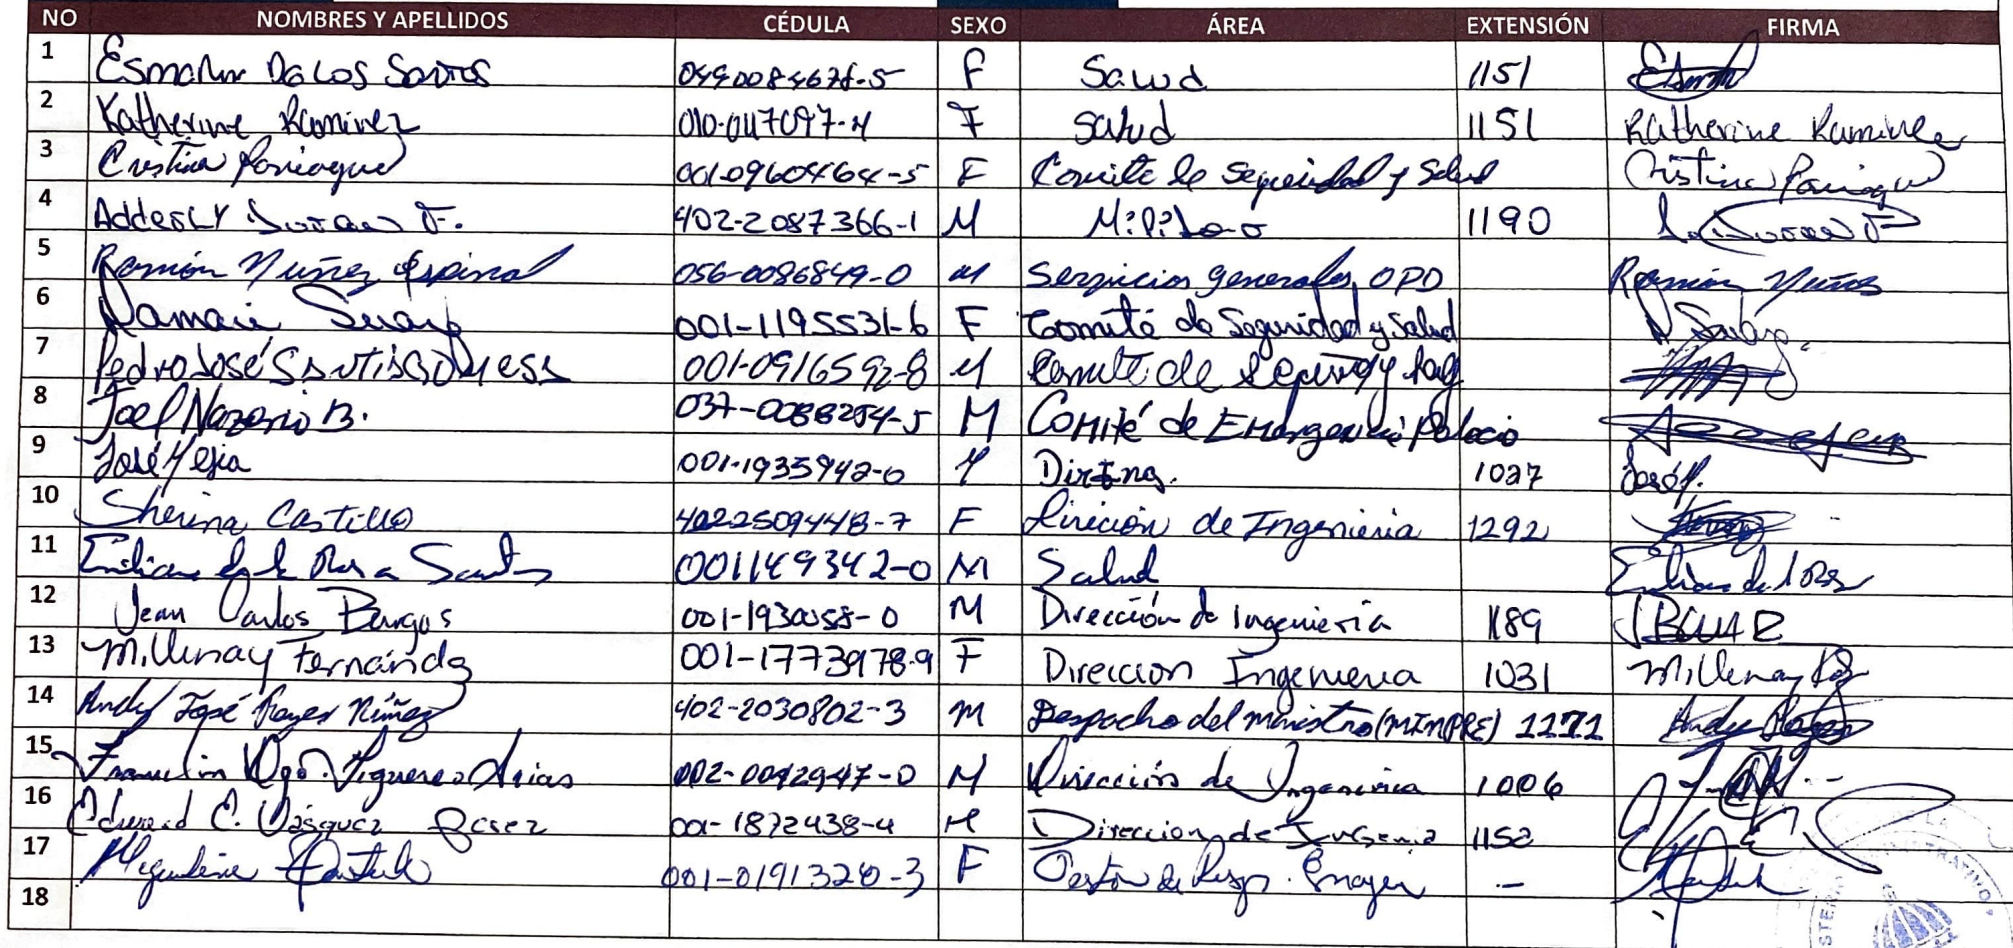 NO NOMBRES Y APELLIDOS CÉDULA SEXO ÁREA EXTENSIÓN FIRMA
1 De Los Santos F Salud 1151
2 Katherine Ramirez 010-0117097-4 F Salud 1151 Katherine Ramirez
3 Cristina Paniagua 001-0960464-5 F Comite de Seguridad y Salud Cristina Paniagua
4 Adderly Duran F. 402-2087366-1 M Militar 1190 Duran F
5 Ramón Nuñez Espinal 056-0086849-0 M Servicios generales OPD Ramón Nuñez
6 Damaris Suarez 001-1195531-6 F Comité de Seguridad y Salud
7 Pedro José Santiago 001-0916592-8 M Comite de
8 Joel Nazario B. 037-0088254-5 M Comité de Emergencia Palacio
9 José Mejia 001-1935942-0 M Dir Ing. 1027 José M.
10 Sherina Castillo 402-2509448-7 F Direción de Ingenieria 1292
11 de la Rosa Santos 0011149342-0 M Salud
12 Jean Carlos Burgos M Dirección de Ingenieria 1189
13 Millenay Fernández 001-1773978-9 F Direccion Ingenieria 1031 Millenay
14 Andy José Reyes Núñez 402-2030802-3 M Despacho del ministro (MINPRE) 1171 Andy Reyes
15 Franklin Figuereo Arias 002-0092947-0 M Dirección de Ingenieria 1006
16 Edward E. Vásquez Baez 001-1872438-4 M Direccion de Ingenia 1152
17 001-0191320-3 F Gestón de -
18